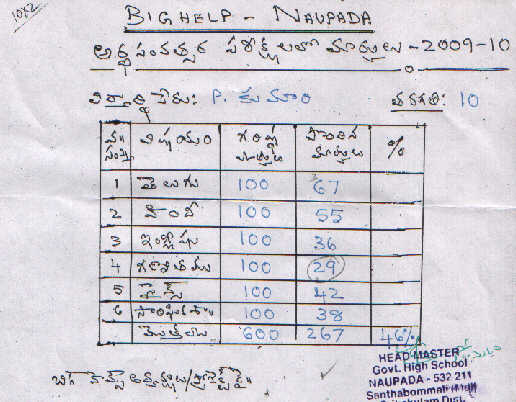 1082
BIGHELP - NAUPADA
అర్థ సంవత్సర పరీక్షలలో మార్కులు - 2009-10
విద్యార్థి పేరు: P. కుమారి తరగతి: 10
వ॥ సంఖ్య విషయం గరిష్ట మార్కులు పొందిన మార్కులు %
1 తెలుగు 100 67
2 హిందీ 100 55
3 ఇంగ్లీషు 100 36
4 గణితము 100 29
5 సైన్స్ 100 42
6 సాంఘిక 100 38
మొత్తం 600 267 46%
HEAD MASTER
Govt. High School
NAUPADA - 532 211
Santhabommali